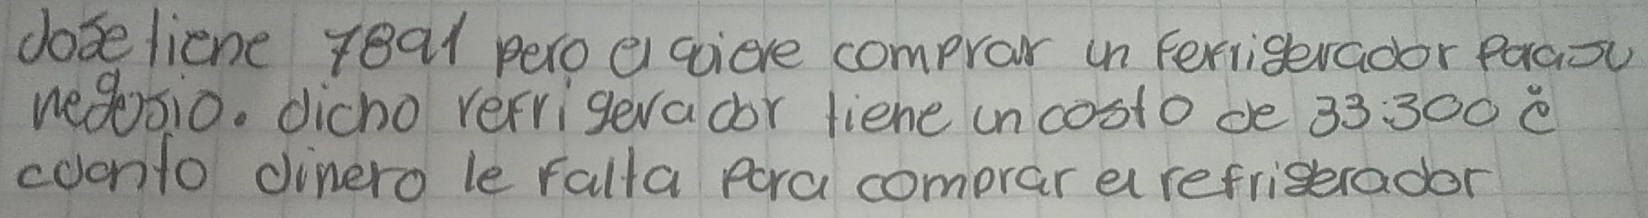 dose tiene 7891 pero el qiere comprar un Ferrigerador Para su
negosio. dicho refrigerador tiene un costo de 33.300 ċ
cuanto dinero le falta Para comprar el refrigerador